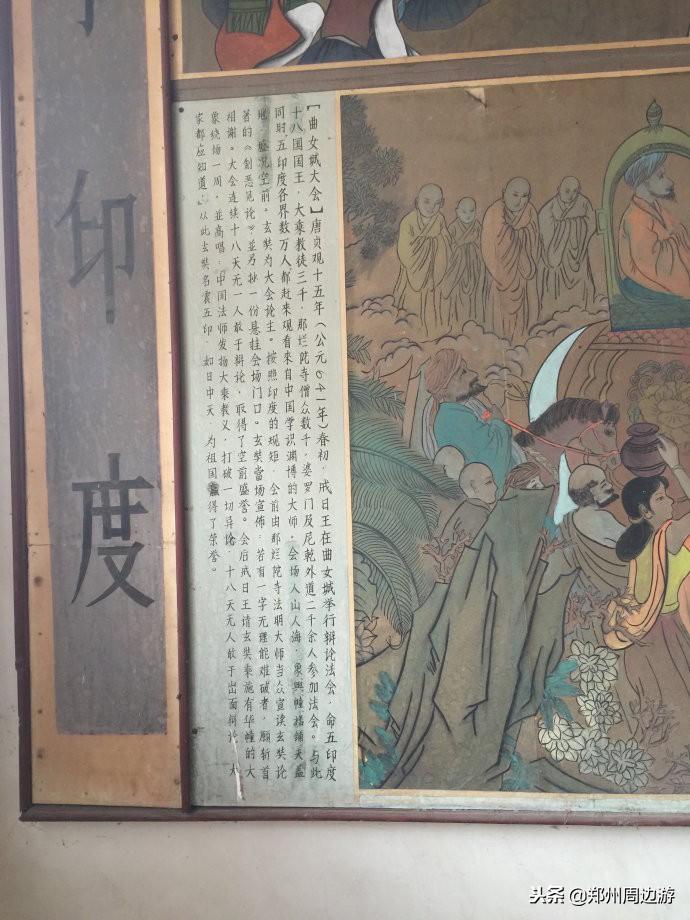 印度
【曲女城大会】唐贞观十五年(公元641年)春初,戒日王在曲女城举行辩论法会,命五印度
十八国国王,大乘教徒三千,那烂陀寺僧众数千,婆罗门及尼乾外道二千余人参加法会。与此
同时,五印度各界数万人都赶来观看來自中国学识渊博的大师。会场人山人海,象輿幢幡铺天盖
地,盛况空前。玄奘为大会论主。按照印度的规矩,会前由那烂陀寺法明大师当众宣读玄奘论
著的《制恶见论》,並另抄一份悬挂会场门口。玄奘當场宣佈:若有一字无理能难破者,願斩首
相谢。大会连续十八天无一人敢于辩论,取得了空前盛誉。会后戒日王请玄奘乘施有华幢的大
象绕场一周,並高唱:"中国法师发扬大乘教义,打破一切异论,十八天无人敢于出面辩论,大
家都应知道。"从此玄奘名震五印,如日中天,为祖国赢得了荣誉。
头条 @郑州周边游